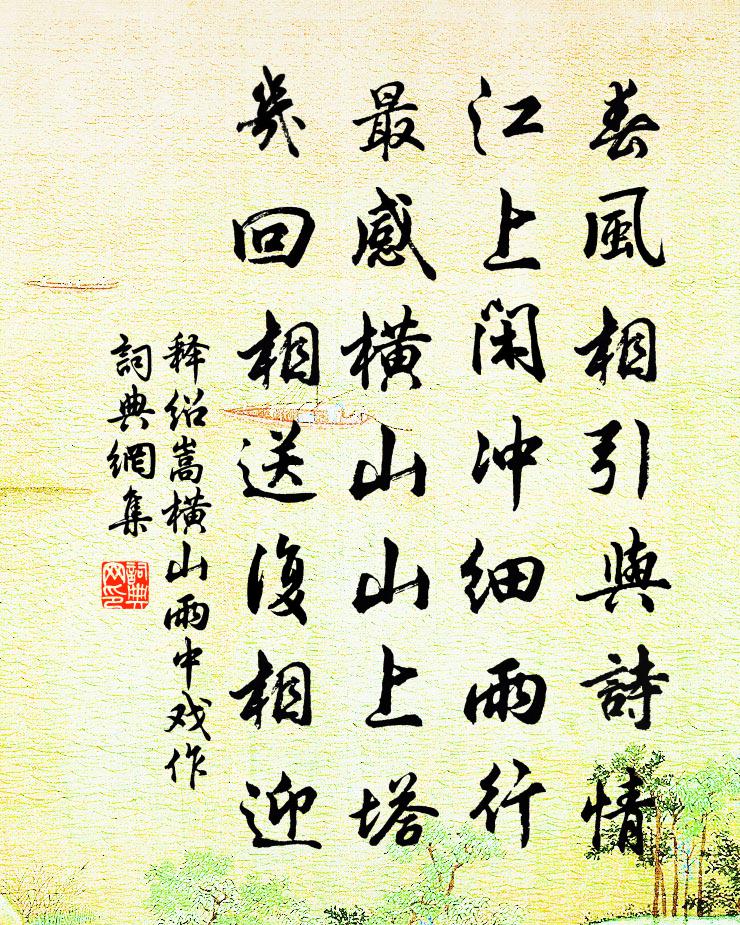 春風相引與詩情
江上閑冲細雨行
最感橫山山上塔
幾回相送復相迎
释绍嵩橫山雨中戏作
詞典網集
詞典網印